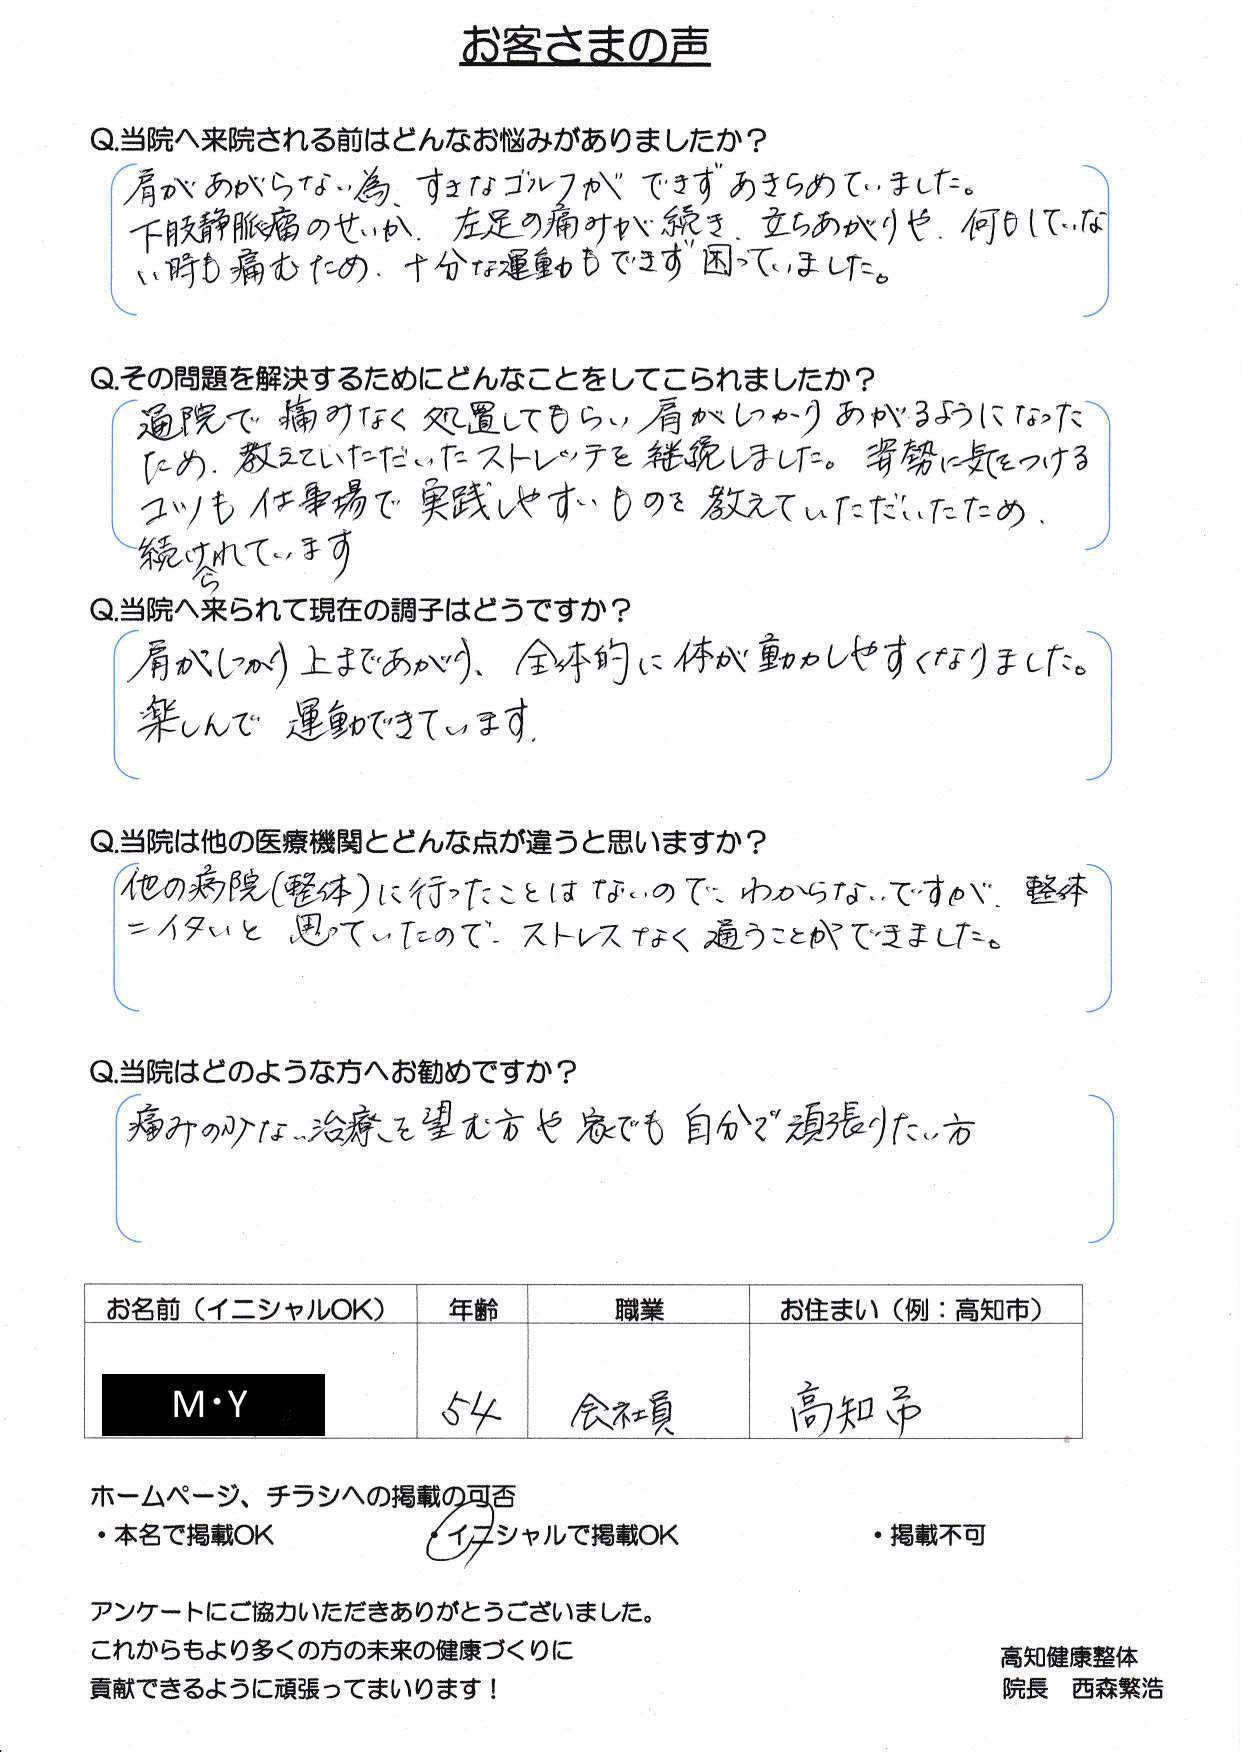 お客さまの声
Q.当院へ来院される前はどんなお悩みがありましたか？
肩があがらない為、すきなゴルフができずあきらめていました。
下肢静脈瘤のせいか、左足の痛みが続き、立ちあがりや、何もしていな
い時も痛むため、十分な運動もできず困っていました。
Q.その問題を解決するためにどんなことをしてこられましたか？
通院で痛みなく処置してもらい肩がしっかりあがるようになった
ため、教えていただいたストレッチを継続しました。姿勢に気をつける
コツも仕事場で実践しやすいものを教えていただいたため、
続けられています
Q.当院へ来られて現在の調子はどうですか？
肩がしっかり上まであがり、全体的に体が動かしやすくなりました。
楽しんで運動できています。
Q.当院は他の医療機関とどんな点が違うと思いますか？
他の病院(整体)に行ったことはないので、わからないですが、整体
＝イタいと思っていたので、ストレスなく通うことができました。
Q.当院はどのような方へお勧めですか？
痛みの少ない治療を望む方や家でも自分で頑張りたい方
お名前（イニシャルOK） 年齢 職業 お住まい（例：高知市）
M・Y 54 会社員 高知市
ホームページ、チラシへの掲載の可否
・本名で掲載OK ・イニシャルで掲載OK ・掲載不可
アンケートにご協力いただきありがとうございました。
これからもより多くの方の未来の健康づくりに
貢献できるように頑張ってまいります！
高知健康整体
院長　西森繁浩